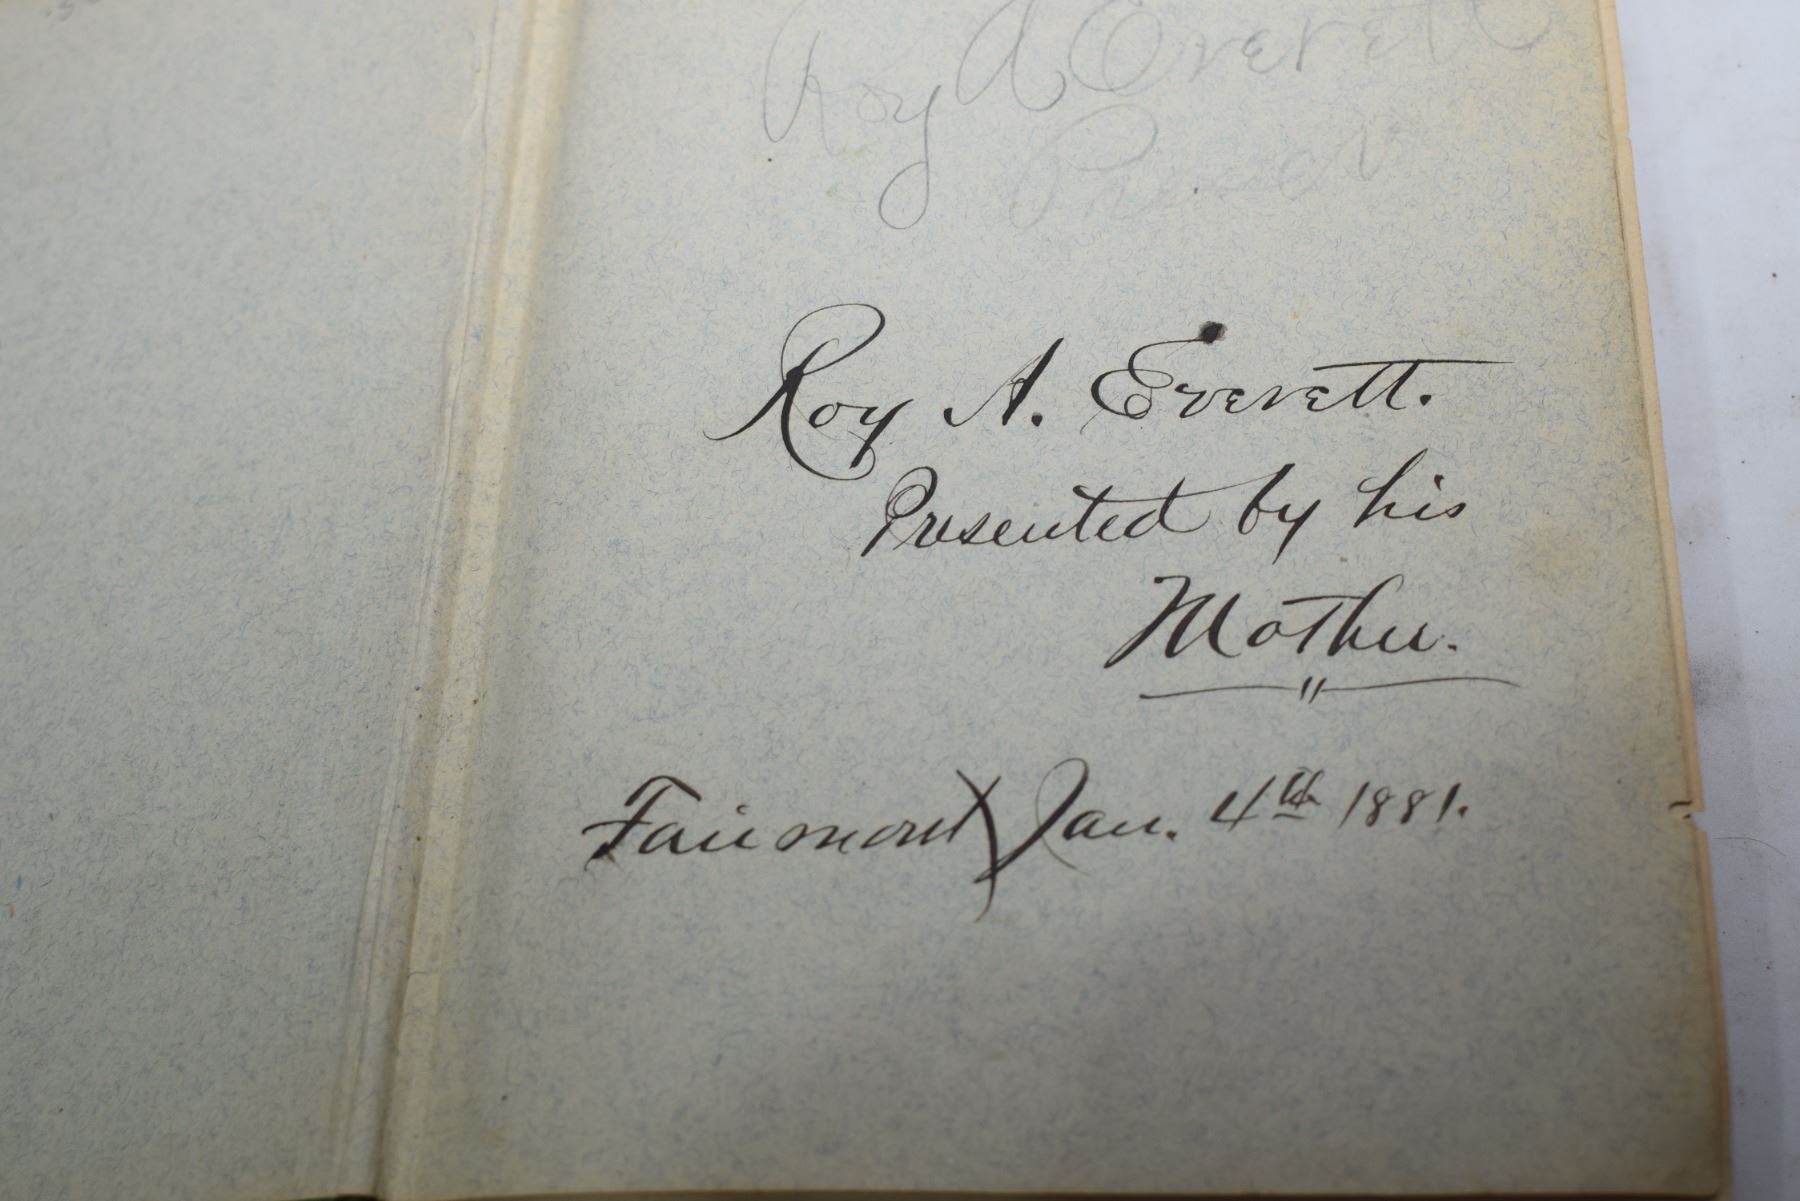 Roy A Everett
Roy A. Everett.
Presented by his
Mother.
Fairmont Jan. 4th 1881.